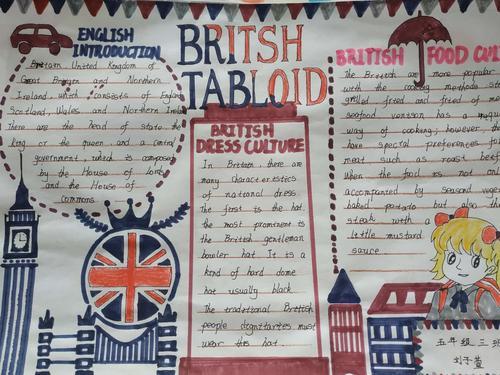 ENGLISH
INTRODUCTION
Britain United Kingdom of
Great Britain and Northern
Ireland, which consists of England
Scotland, Wales and Northern Ireland
There are the head of state the
king or the queen and a central
government, which is composed
by the House of Lords
and the House of
Commons
BRITSH
TABLOID
BRITISH
DRESS CULTURE
In Britain, there are
many characteristics
of national dress
The first is the hat,
the most prominent is
the British gentleman
bowler hat It is a
kind of hard dome
hat usually black
The traditional British
people dignitaries must
wear this hat.
BRITISH FOOD CUL
The British are more popular
with the cooking methods ste
grilled fried and fried of m
seafood venison has a uniqu
way of cooking; however,
have special preferences fo
meat such as roast bee
When the food is not onl
accompanied by seasond veg
baked potato but also th
steak with a
little mustard
sauce
五年级三班
刘子萱